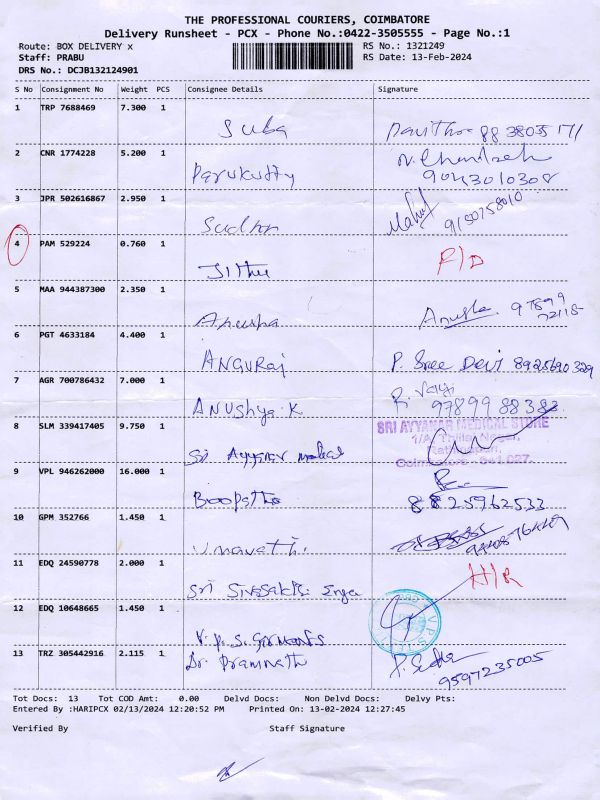 THE PROFESSIONAL COURIERS, COIMBATORE
Delivery Runsheet - PCX - Phone No.:0422-3505555 - Page No.:1
Route: BOX DELIVERY x RS No.: 1321249
Staff: PRABU RS Date: 13-Feb-2024
DRS No.: DCJB132124901
S No Consignment No Weight PCS Consignee Details Signature
1 TRP 7688469 7.300 1
Suba
2 CNR 1774228 5.200 1 N. Chandrach
Parukutty 9043010308
3 JPR 502616867 2.950 1
Sudhan 9150758010
4 PAM 529224 0.760 1 R/D
Jithu
5 MAA 944387300 2.350 1
Anusha Anusha 97899
72118
6 PGT 4633184 4.400 1
ANGURaj P. Sree Devi 8925690329
7 AGR 700786432 7.000 1
ANUshya.K 97899 88383
8 SLM 339417405 9.750 1 SRI AYYANAR MEDICAL STORE
Sri Ayyanar medical Coimbatore - 641 027.
9 VPL 946262000 16.000 1
Boopathi 8825962533
10 GPM 352766 1.450 1
Umavathi
11 EDQ 24590778 2.000 1 H/R
Sri Sivasakthi Engg
12 EDQ 10648665 1.450 1
V.P.S. Garments
13 TRZ 305442916 2.115 1
Dr. Pramnath 9597235005
Tot Docs: 13 Tot COD Amt: 0.00 Delvd Docs: Non Delvd Docs: Delvy Pts:
Entered By :HARIPCX 02/13/2024 12:20:52 PM Printed On: 13-02-2024 12:27:45
Verified By Staff Signature